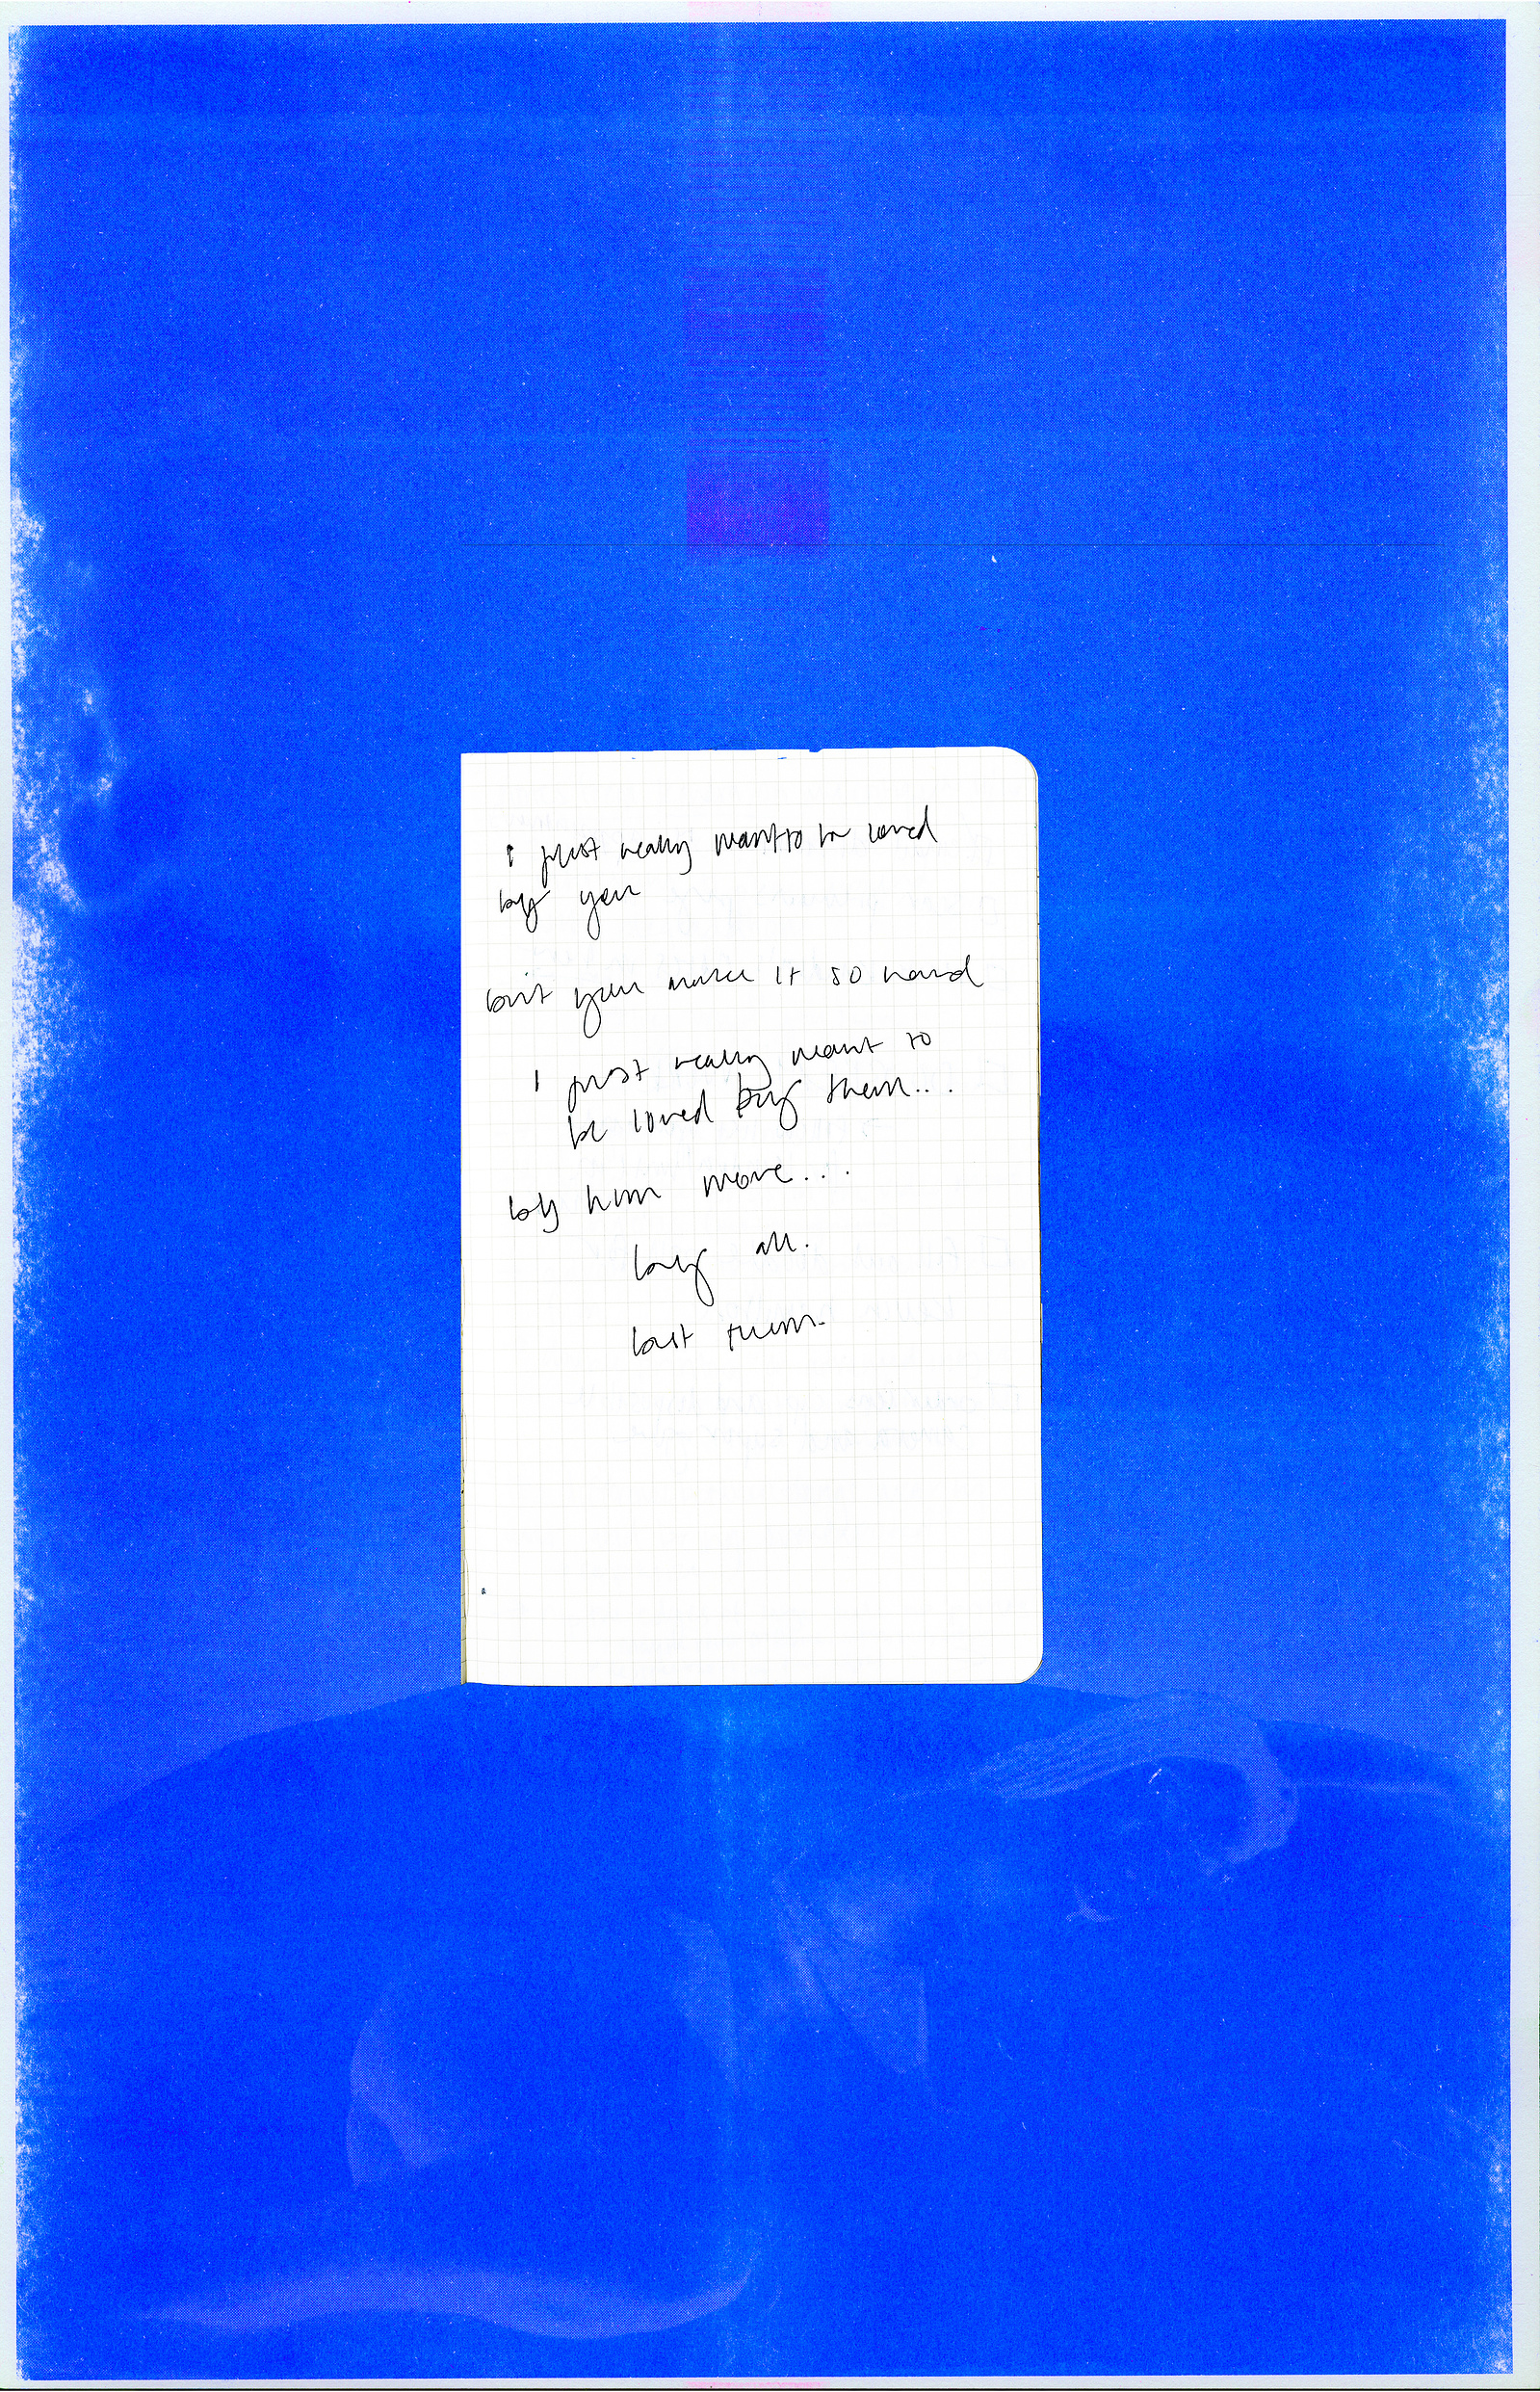 I just really want to be loved
by you
but you make it so hard
I just really want to
be loved by them...
by him more...
by all.
but them.